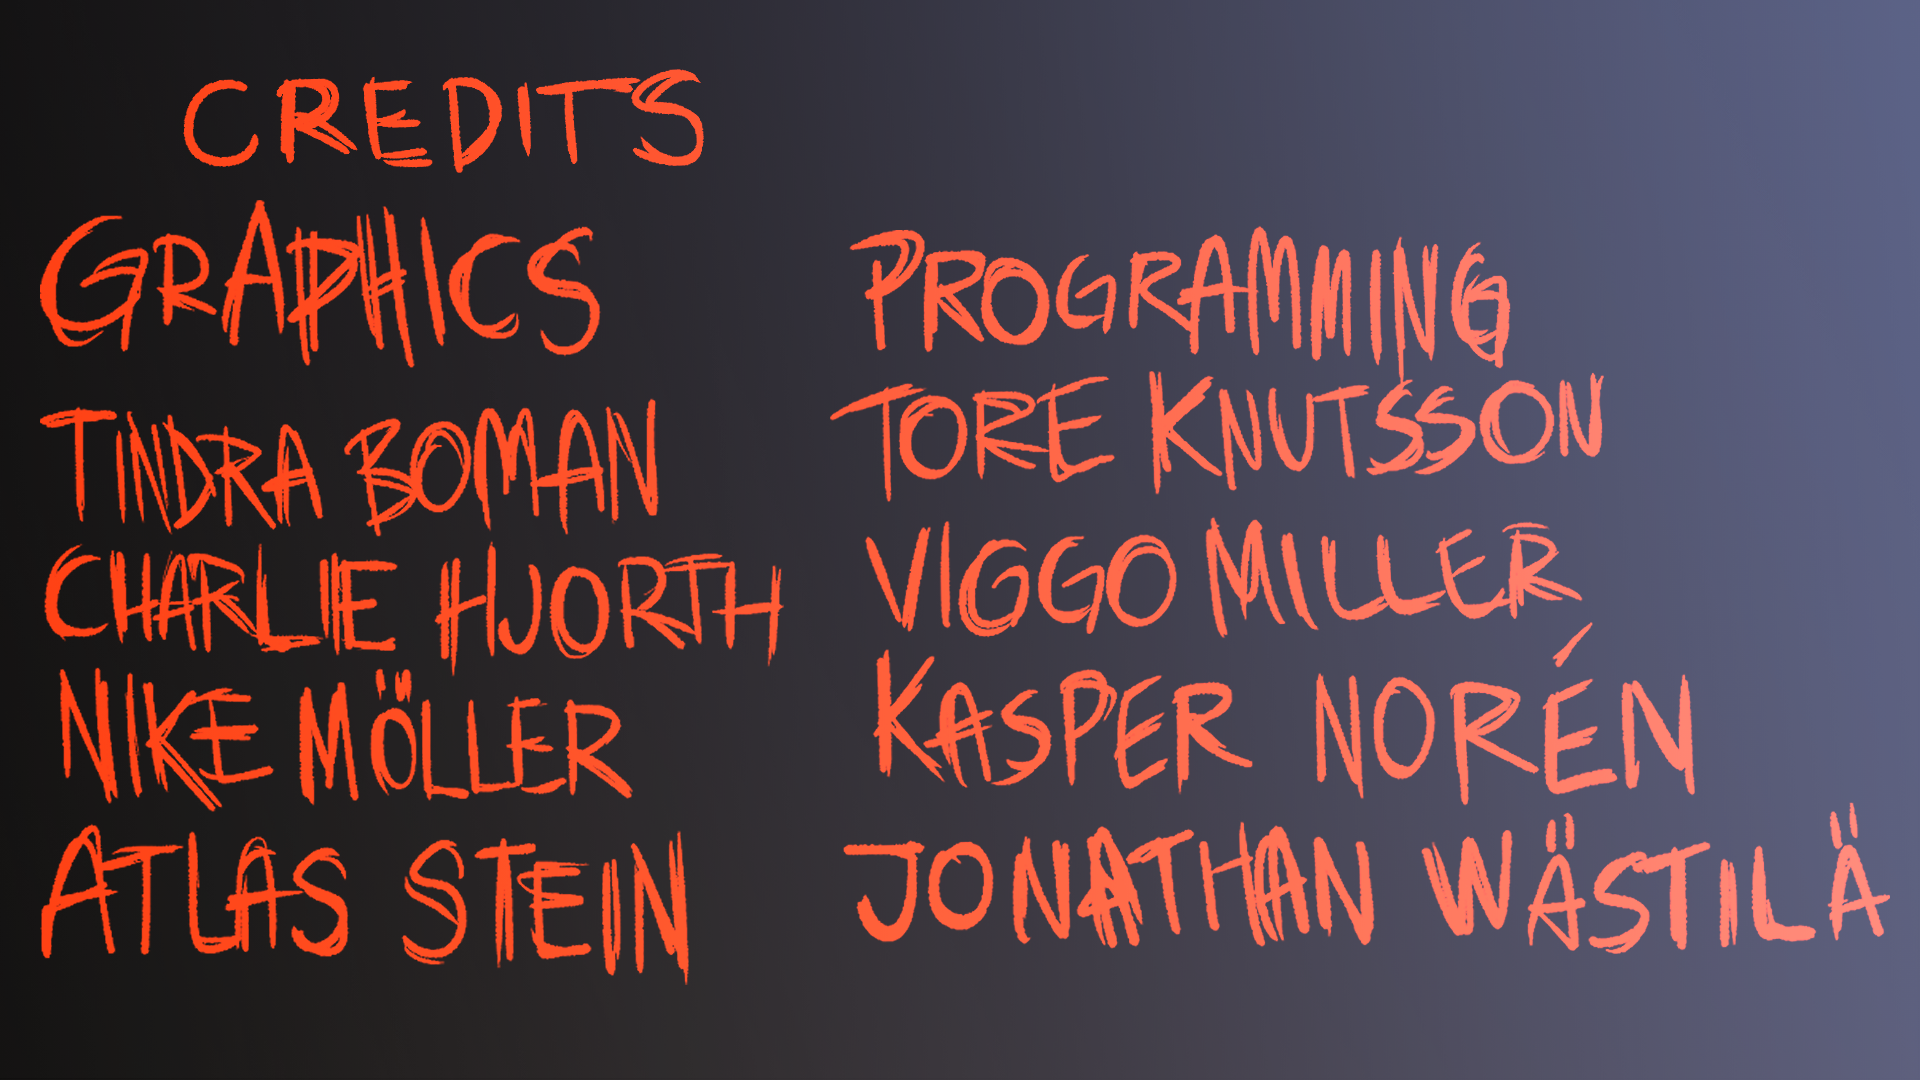 CREDITS
GRAPHICS
TINDRA BOMAN
CHARLIE HJORTH
NIKE MÖLLER
ATLAS STEIN
PROGRAMMING
TORE KNUTSSON
VIGGO MILLER
KASPER NORÉN
JONATHAN WÄSTILÄ